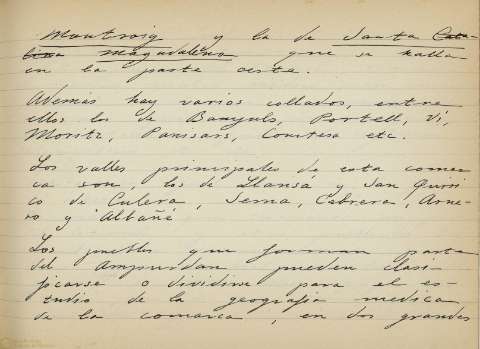 Montroig y la de Santa Cata-
lina Magadalena que se halla
en la parte oeste.
Además hay varios collados, entre
ellos los de Banyuls, Portell, Vi,
Moritz, Panisars, Comtesa etc.
Los valles principales de esta comar
ca son, los de Llansá y San Quiri
co de Culera, Serna, Cabrera, Arne-
ro y Albañá
Los pueblos que forman parte
del Ampurdan pueden clasi-
ficarse o dividirse para el es-
tudio de la geografia medica
de la comarca, en dos grandes